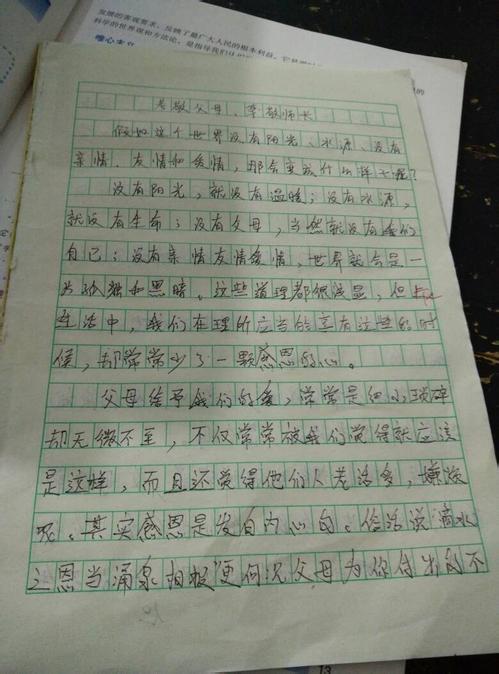 发展的客观要求，反映了最广大人民的根本利益，它是
科学的世界观和方法论，是指导我们
唯心主义
孝敬父母、尊敬师长
假如这个世界没有阳光、水源、没有
亲情、友情和爱情，那会变成什么样子呢？
没有阳光，就没有温暖；没有水源，
就没有生命；没有父母，当然就没有我们
自己；没有亲情友情爱情，世界就会是一
片孤独和黑暗。这些道理都很浅显，但在
生活中，我们在理所应当的享有这些的时
候，却常常少了一颗感恩的心。
父母给予我们的爱，常常是细小琐碎
却无微不至，不仅常常被我们觉得就应该
是这样，而且还觉得他们人老话多，嫌烦
呢。其实感恩是发自内心的。俗话说"滴水
之恩当涌泉相报"更何况父母为你付出的不
13